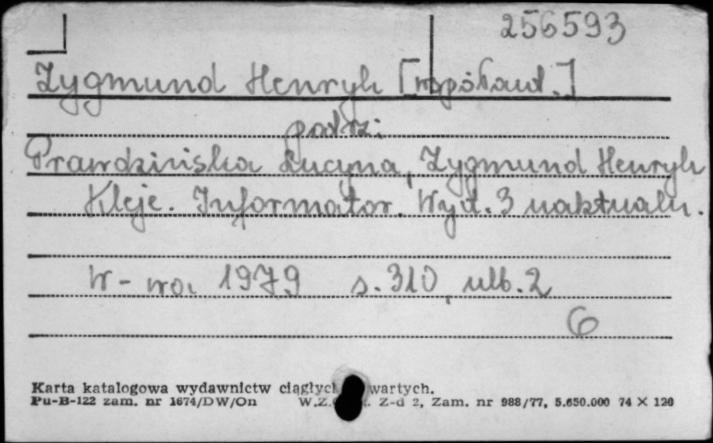 256593
Zygmund Henryk [współaut.]
patrz:
Prawdzińska Lucyna, Zygmund Henryk
Kleje. Informator. Wyd. 3 uaktualn.
W-wa 1979 s. 310, ulb. 2
6
Karta katalogowa wydawnictw ciągłych wartych.
Pu-B-122 zam. nr 1674/DW/On W.Z. Z-d 2, Zam. nr 988/77, 5.650.000 74 × 120